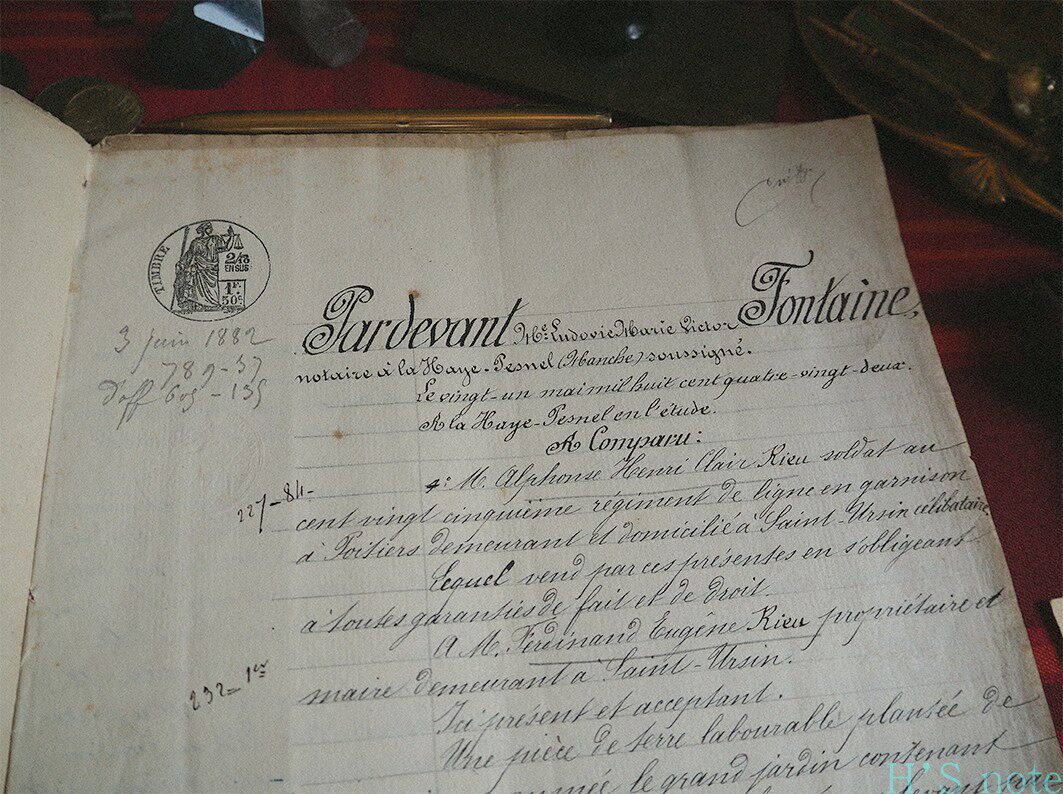 TIMBRE
2/10
EN SUS
1F.
50c.
3 juin 1882
789-37
Pardevant Me. Ludovic Marie Victor Fontaine,
notaire à la Haye-Pesnel (Manche) soussigné.
Le vingt-un mai mil huit cent quatre-vingt-deux.
A la Haye-Pesnel en l'étude.
A Comparu:
M. Alphonse Henri Clair Rieu soldat au
227-84-
cent vingt cinquième régiment de ligne en garnison
à Poitiers demeurant et domicilié à Saint-Ursin célibataire
Lequel vend par ces présentes en s'obligeant
à toutes garanties de fait et de droit.
A M. Ferdinand Eugène Rieu propriétaire et
232-1er
maire demeurant à Saint-Ursin.
Ici présent et acceptant.
Une pièce de terre labourable plantée de
le grand jardin contenant
levant
H'S note